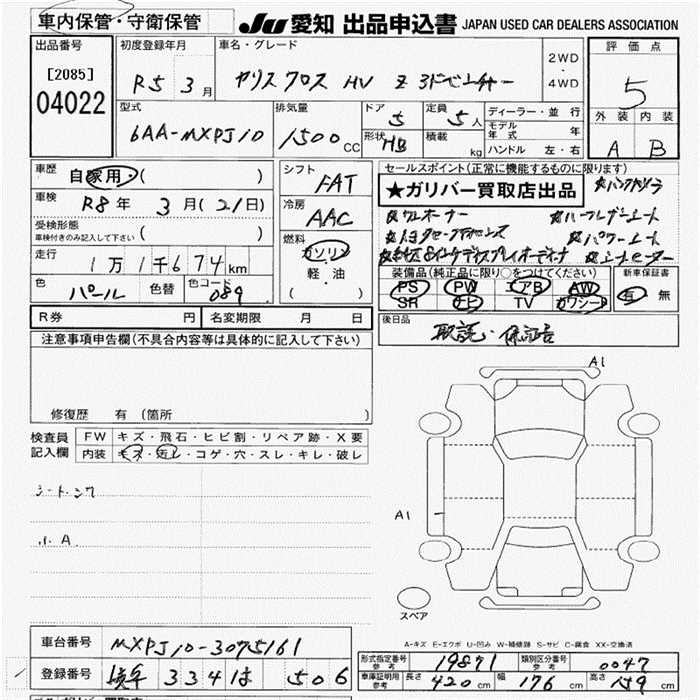 車内保管・守衛保管
JU 愛知 出品申込書 JAPAN USED CAR DEALERS ASSOCIATION
出品番号
[2085]
04022
初度登録年月
R5 3月
車名・グレード
ヤリスクロス HV Z 3ドベンチャー
2WD
・
4WD
評価点
5
外装 内装
A B
型式
6AA-MXPJ10
排気量
1500 CC
ドア 5
形状 HB
定員 5人
積載 kg
ディーラー・並行
モデル年式 年
ハンドル 左・右
車歴 自家用 ( )
車検 R8年 3月(21日)
受検形態
車検付きのみ記入して下さい ( )
走行 1万1千674km
色 パール 色替 色コード 089
シフト FAT
冷房 AAC
燃料
ガソリン
軽・油
( )
セールスポイント(正常に機能するものに限ります)
★ガリバー買取店出品
☆ワンオーナー
☆ハーフレザーシート
☆パワーシート
装備品(純正品に限り○をつけてください)
PS PW エアB AW
SR ナビ TV カワシート
新車保証書
有・無
R券 円 名変期限 月 日
後日品
取説・保証書
注意事項申告欄(不具合内容等は具体的に記入して下さい)
修復歴 有(箇所 )
検査員記入欄
FW キズ・飛石・ヒビ割・リペア跡・X要
内装 キズ・汚レ・コゲ・穴・スレ・キレ・破レ
A1
A1
スペア
A-キズ E-エクボ U-凹み W-補修跡 S-サビ C-腐食 XX-交換済
車台番号 MXPJ10-3075161
登録番号 岐阜 334 は 506
形式指定番号 参考 19871
類別区分番号 参考 0047
車庫証明用 参考 長さ 420cm 幅 176cm 高さ 159cm